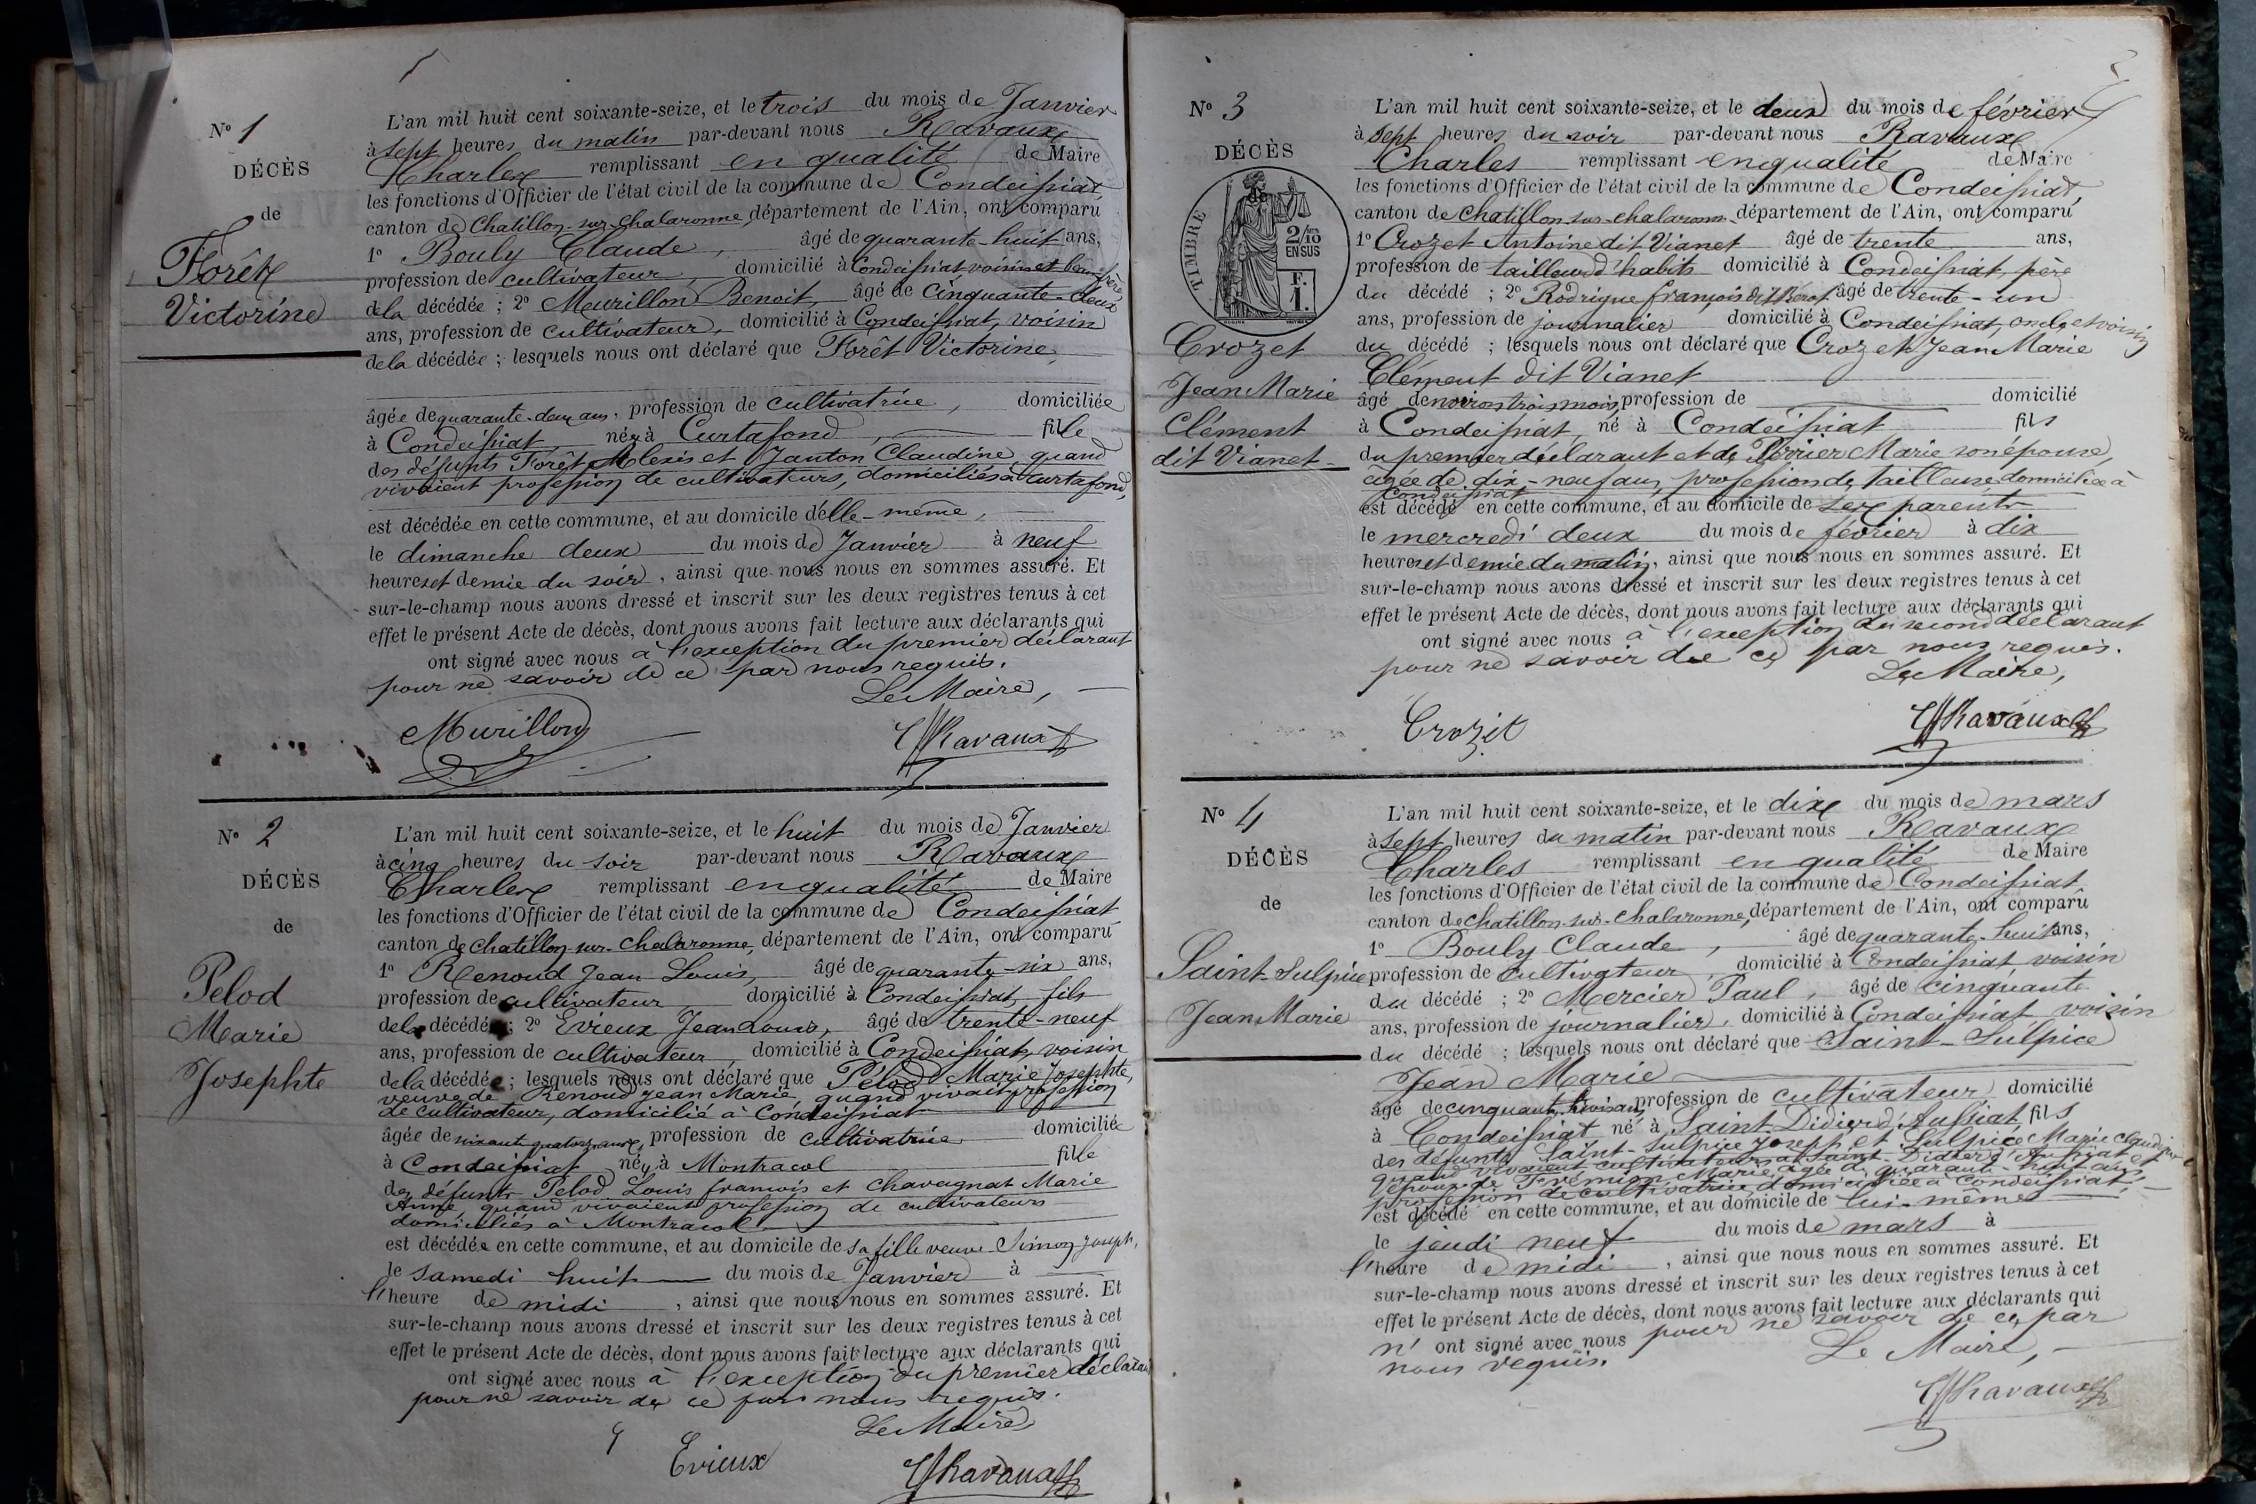 N° 1
DÉCÈS
de
Forêt
Victorine
L'an mil huit cent soixante-seize, et le trois du mois de Janvier
à sept heures du matin par-devant nous Ravaux
Charles remplissant en qualité de Maire
les fonctions d'Officier de l'état civil de la commune de Condeissiat,
canton de Chatillon-sur-Chalaronne, département de l'Ain, ont comparu
1° Bouly Claude, âgé de quarante-huit ans,
profession de cultivateur, domicilié à Condeissiat voisin et beau-frère
de la décédée ; 2° Meurillon Benoit, âgé de cinquante-deux
ans, profession de cultivateur, domicilié à Condeissiat, voisin
de la décédée ; lesquels nous ont déclaré que Forêt Victorine,
âgée de quarante-deux ans, profession de cultivatrice, domiciliée
à Condeissiat, née à Curtafond, fille
des défunts Forêt Alexis et Janton Claudine, quand
vivaient profession de cultivateurs, domiciliés à Curtafond,
est décédée en cette commune, et au domicile d'elle-même,
le dimanche deux du mois de Janvier à neuf
heures et demie du soir, ainsi que nous nous en sommes assuré. Et
sur-le-champ nous avons dressé et inscrit sur les deux registres tenus à cet
effet le présent Acte de décès, dont nous avons fait lecture aux déclarants qui
ont signé avec nous à l'exception du premier déclarant
pour ne savoir de ce par nous requis.
Le Maire,
Murillon Ravaux
N° 2
DÉCÈS
de
Pelod
Marie
Josephte
L'an mil huit cent soixante-seize, et le huit du mois de Janvier
à cinq heures du soir par-devant nous Ravaux
Charles remplissant en qualité de Maire
les fonctions d'Officier de l'état civil de la commune de Condeissiat
canton de Chatillon-sur-Chalaronne, département de l'Ain, ont comparu
1° Renoud Jean Louis, âgé de quarante-six ans,
profession de cultivateur domicilié à Condeissiat, fils
de la décédée ; 2° Evieux Jean Louis, âgé de trente-neuf
ans, profession de cultivateur, domicilié à Condeissiat, voisin
de la décédée ; lesquels nous ont déclaré que Pélod Marie Josephte,
veuve de Renoud Jean Marie, quand vivait profession
de cultivateur, domicilié à Condeissiat
âgée de soixante quatorze ans, profession de cultivatrice domiciliée
à Condeissiat, née à Montracol fille
des défunts Pelod Louis françois et Chavagnat Marie
Anne, quand vivaient profession de cultivateurs
domiciliés à Montracol
est décédée en cette commune, et au domicile de sa fille veuve Simon Joseph,
le samedi huit du mois de Janvier à
l'heure de midi, ainsi que nous nous en sommes assuré. Et
sur-le-champ nous avons dressé et inscrit sur les deux registres tenus à cet
effet le présent Acte de décès, dont nous avons fait lecture aux déclarants qui
ont signé avec nous à l'exception du premier déclarant
pour ne savoir de ce par nous requis.
Le Maire
Evieux Ravaux
N° 3
DÉCÈS
de
TIMBRE
2/10
EN SUS
F.
1.
Crozet
Jean Marie
Clément
dit Vianet
L'an mil huit cent soixante-seize, et le deux du mois de février
à sept heures du soir par-devant nous Ravaux
Charles remplissant en qualité de Maire
les fonctions d'Officier de l'état civil de la commune de Condeissiat,
canton de Chatillon-sur-Chalaronne département de l'Ain, ont comparu
1° Crozet Antoine dit Vianet âgé de trente ans,
profession de tailleur d'habits domicilié à Condeissiat, père
du décédé ; 2° Rodrigue françois dit âgé de trente-un
ans, profession de journalier domicilié à Condeissiat, oncle et voisin
du décédé ; lesquels nous ont déclaré que Crozet Jean Marie
Clément dit Vianet
âgé de environ trois mois, profession de domicilié
à Condeissiat, né à Condeissiat fils
du premier déclarant et de Perrier Marie son épouse,
âgée de dix-neuf ans, profession de tailleuse domiciliée à
Condeissiat
est décédé en cette commune, et au domicile de ses parents
le mercredi deux du mois de février à dix
heures et demie du matin, ainsi que nous nous en sommes assuré. Et
sur-le-champ nous avons dressé et inscrit sur les deux registres tenus à cet
effet le présent Acte de décès, dont nous avons fait lecture aux déclarants qui
ont signé avec nous à l'exception du second déclarant
pour ne savoir de ce par nous requis.
Le Maire,
Crozet Ravaux
N° 4
DÉCÈS
de
Saint-Sulpice
Jean Marie
L'an mil huit cent soixante-seize, et le dix du mois de mars
à sept heures du matin par-devant nous Ravaux
Charles remplissant en qualité de Maire
les fonctions d'Officier de l'état civil de la commune de Condeissiat
canton de Chatillon-sur-Chalaronne, département de l'Ain, ont comparu
1° Bouly Claude, âgé de quarante-huit ans,
profession de cultivateur, domicilié à Condeissiat voisin
du décédé ; 2° Mercier Paul, âgé de cinquante
ans, profession de journalier, domicilié à Condeissiat, voisin
du décédé ; lesquels nous ont déclaré que Saint-Sulpice
Jean Marie
âgé de cinquante trois ans, profession de cultivateur domicilié
à Condeissiat né à Saint-Didier d'Aussiat, fils
des défunts Saint-Sulpice Joseph et Sulpice Marie Claudine
quand vivaient cultivateurs à Saint-Didier d'Aussiat et
époux de Marie, âgée de quarante-huit ans
profession de cultivatrice domiciliée à Condeissiat,
est décédé en cette commune, et au domicile de lui-même
le jeudi neuf du mois de mars à
l'heure de midi, ainsi que nous nous en sommes assuré. Et
sur-le-champ nous avons dressé et inscrit sur les deux registres tenus à cet
effet le présent Acte de décès, dont nous avons fait lecture aux déclarants qui
n'ont signé avec nous pour ne savoir de ce par
nous requis.
Le Maire,
Ravaux